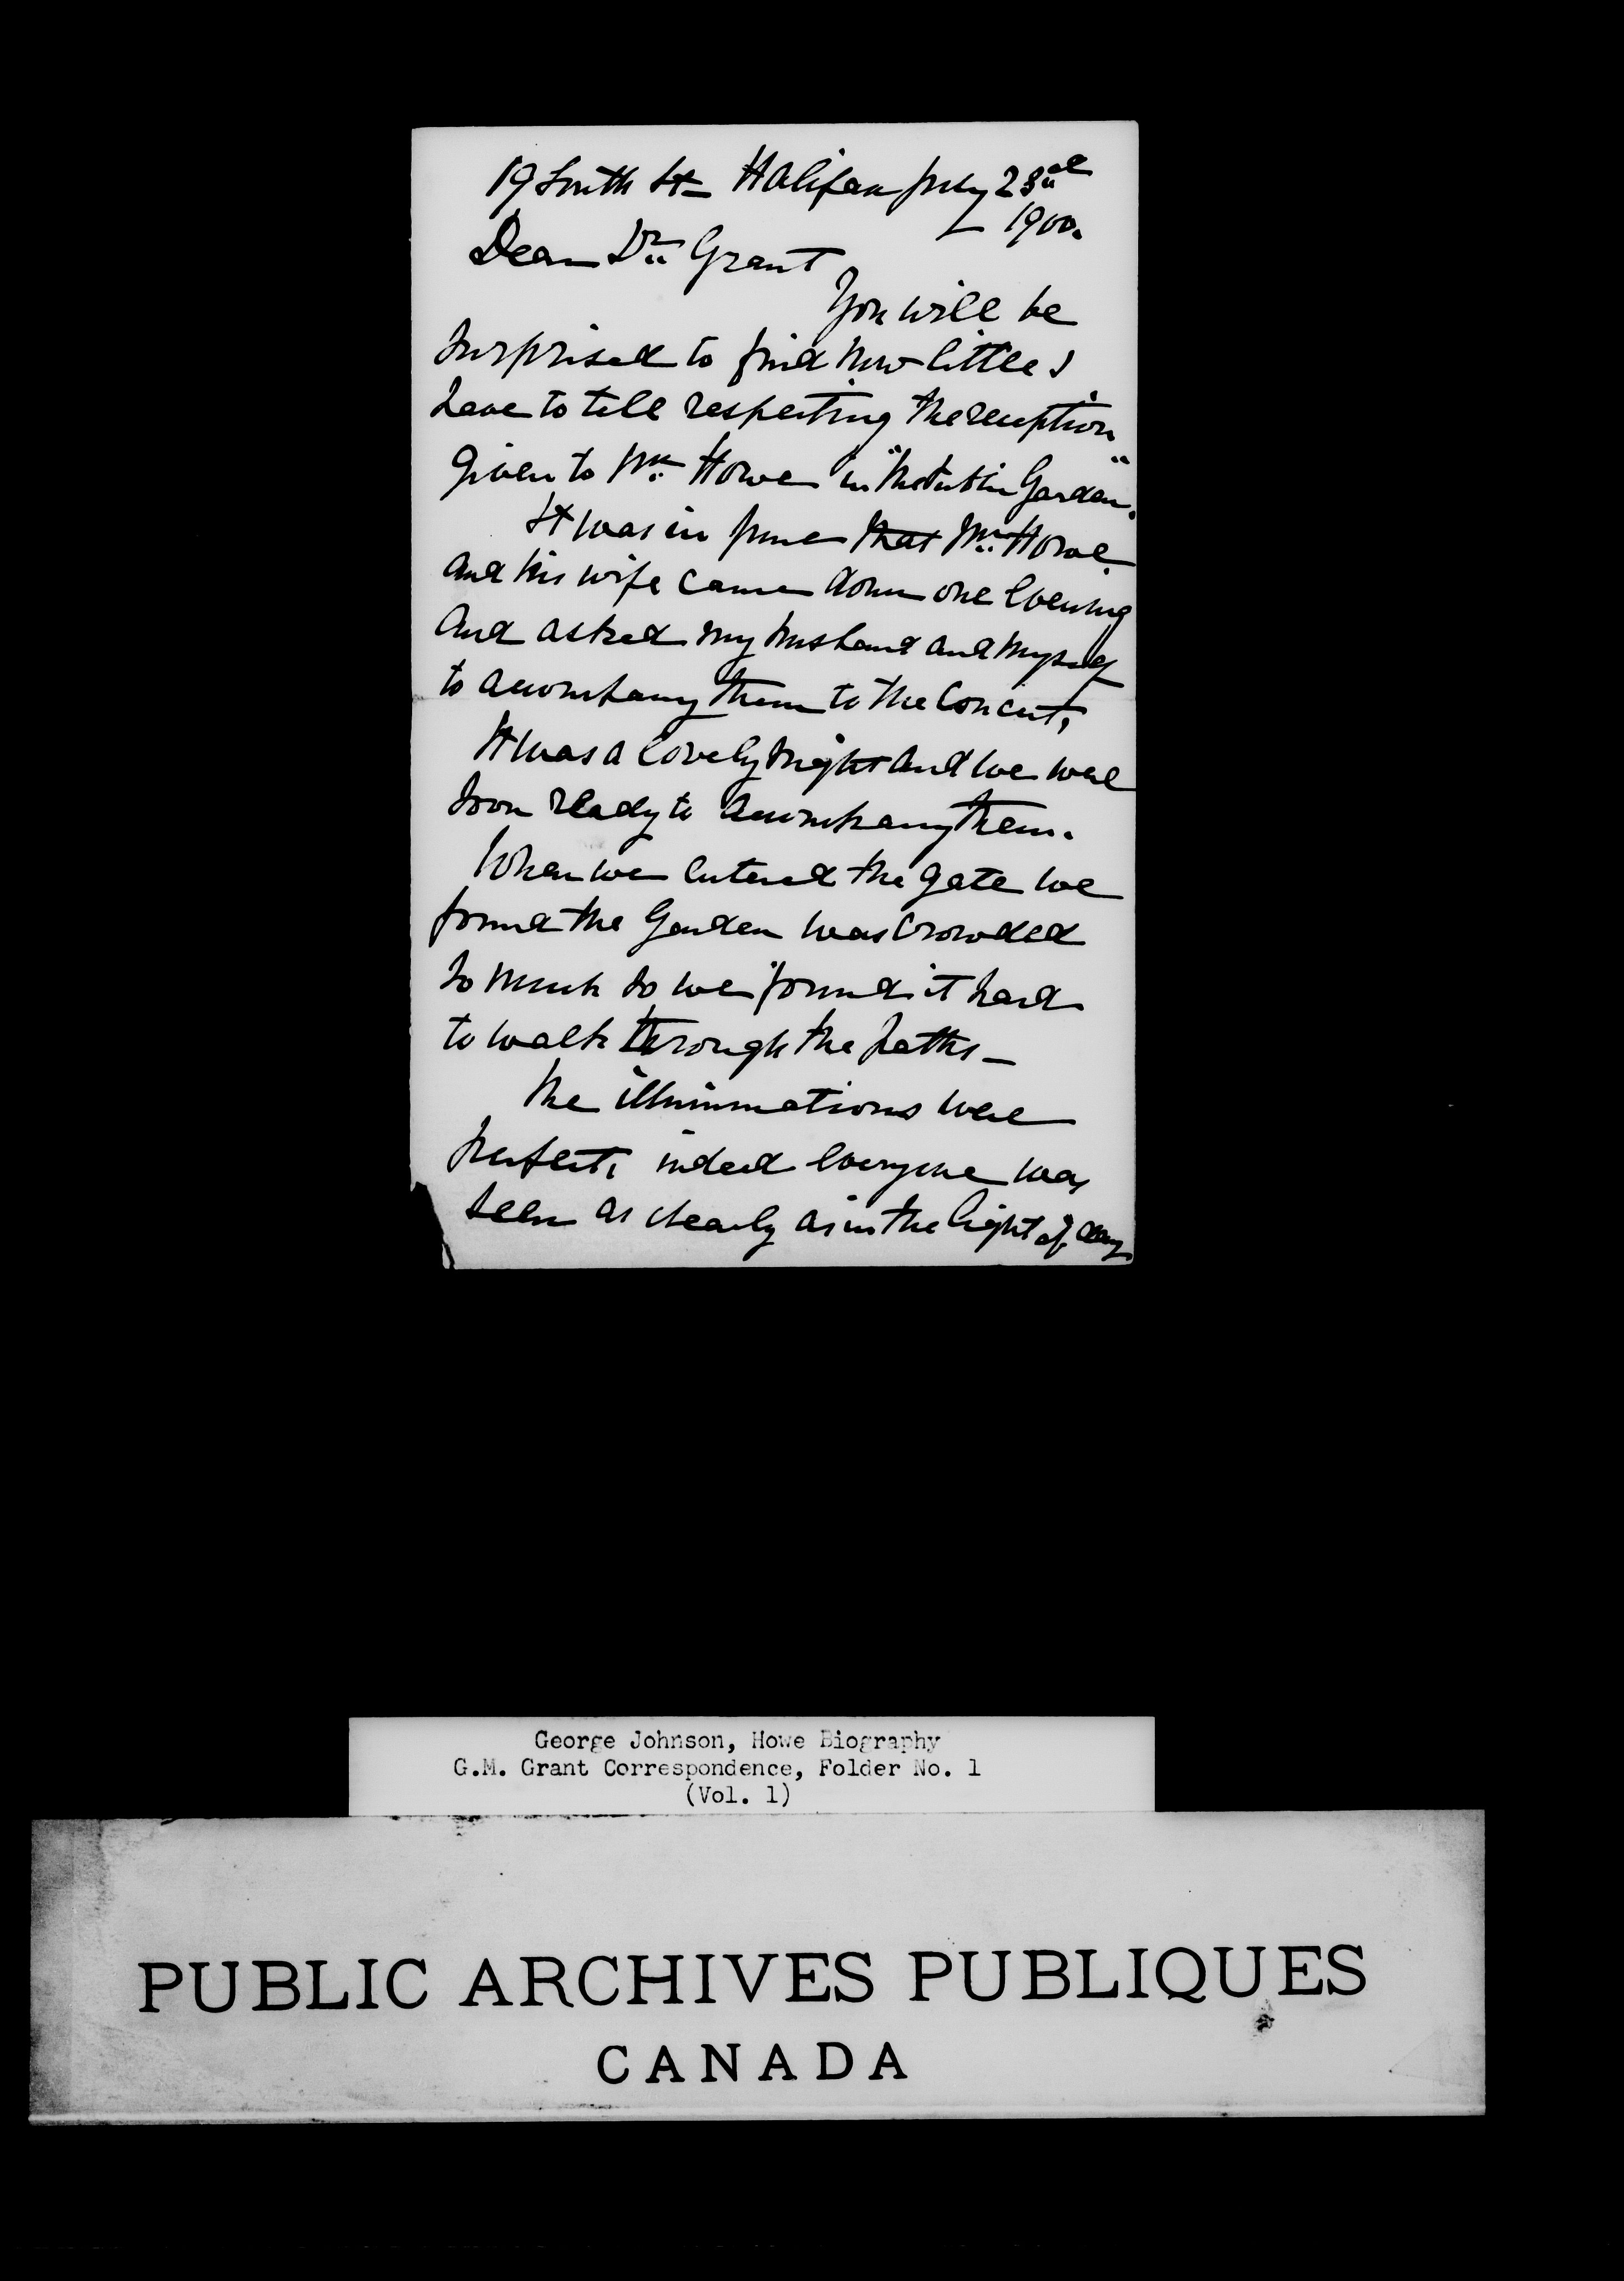 19 South St Halifax July 23rd
1900.
Dear Dr. Grant
You will be
surprised to find how little I
have to tell respecting the reception
given to Mr. Howe in "the Public Garden".
It was in June that Mr. Howe
and his wife came down one evening
and asked my husband and myself
to accompany them to the Concert,
It was a lovely night and we were
soon ready to accompany them.
When we entered the gate we
found the Garden was crowded
so much so we found it hard
to walk through the paths —
The illuminations were
perfect, indeed everyone was
seen as clearly as in the light of day
George Johnson, Howe Biography
G.M. Grant Correspondence, Folder No. 1
(Vol. 1)
PUBLIC ARCHIVES PUBLIQUES
CANADA